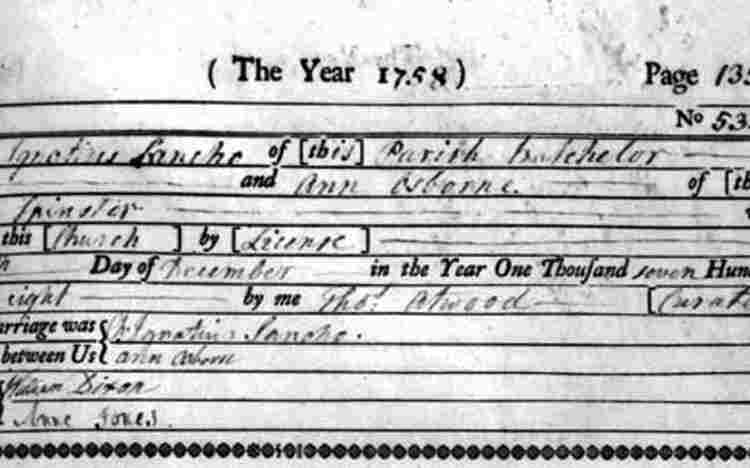 ( The Year 1758 ) Page 135
No 53
Ignatius Sancho of [this] Parish Batchelor
and Ann Osborne. of [th
Spinster
this [Church ] by [License ]
Day of December in the Year One Thousand seven Hun
eight by me Thos. Atwood [Curat
arriage was { Ignatius Sancho.
between Us { ann Osborn
William Dixon
Anne Jones.